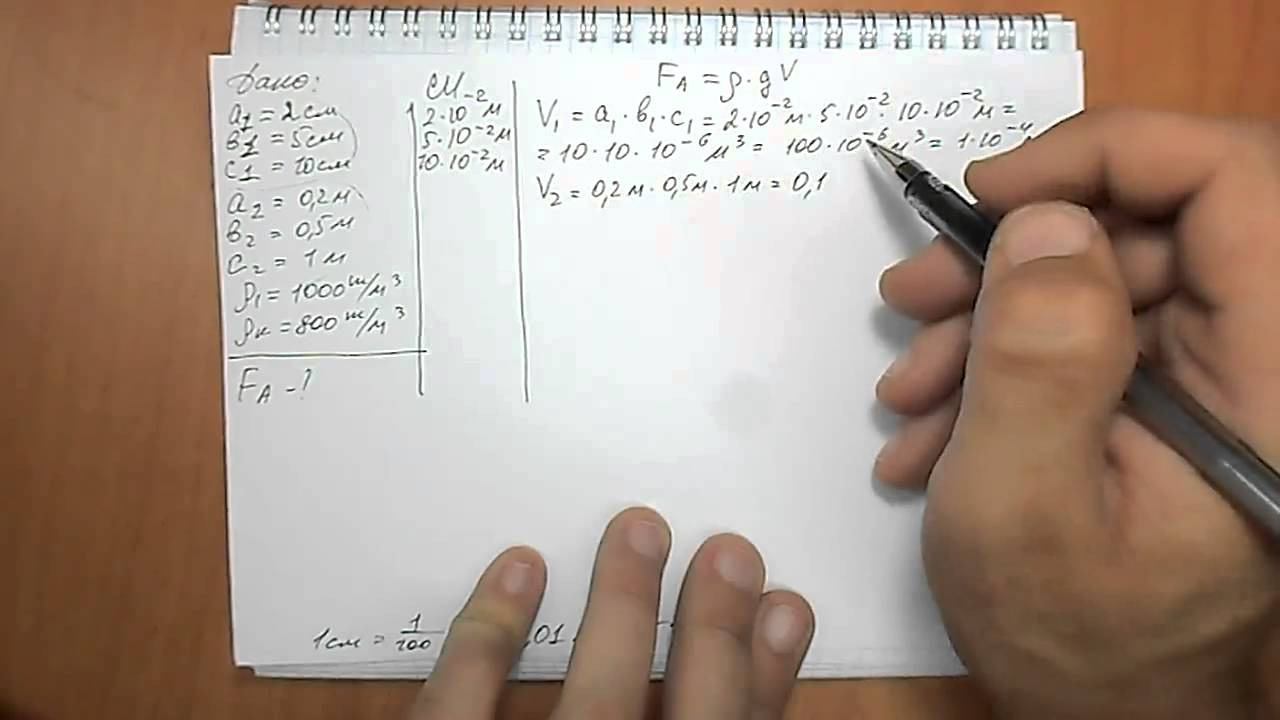 Дано:
a₁ = 2см
в₁ = 5см
c₁ = 10см
a₂ = 0,2м
в₂ = 0,5м
c₂ = 1м
ρ₁ = 1000 кг/м³
ρк = 800 кг/м³
F_A - ?
СИ
2·10⁻² м
5·10⁻² м
10·10⁻² м
F_A = ρ·gV
V₁ = a₁·в₁·c₁ = 2·10⁻² м·5·10⁻²·10·10⁻² м =
= 10·10·10⁻⁶ м³ = 100·10⁻⁶ м³ = 1·10⁻⁴
V₂ = 0,2м·0,5м·1м = 0,1
1см = 1/100 ,01